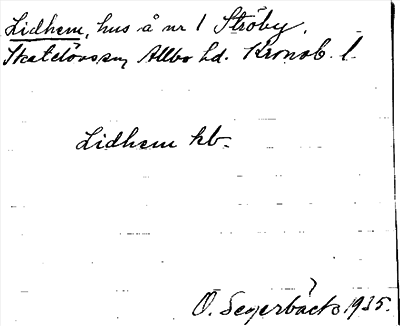 Lidhem, hus å nr 1 Ströby,
Skatelövs sn, Allbo hd. Kronob. l.
Lidhem kb.
O. Segerbäck 1935.